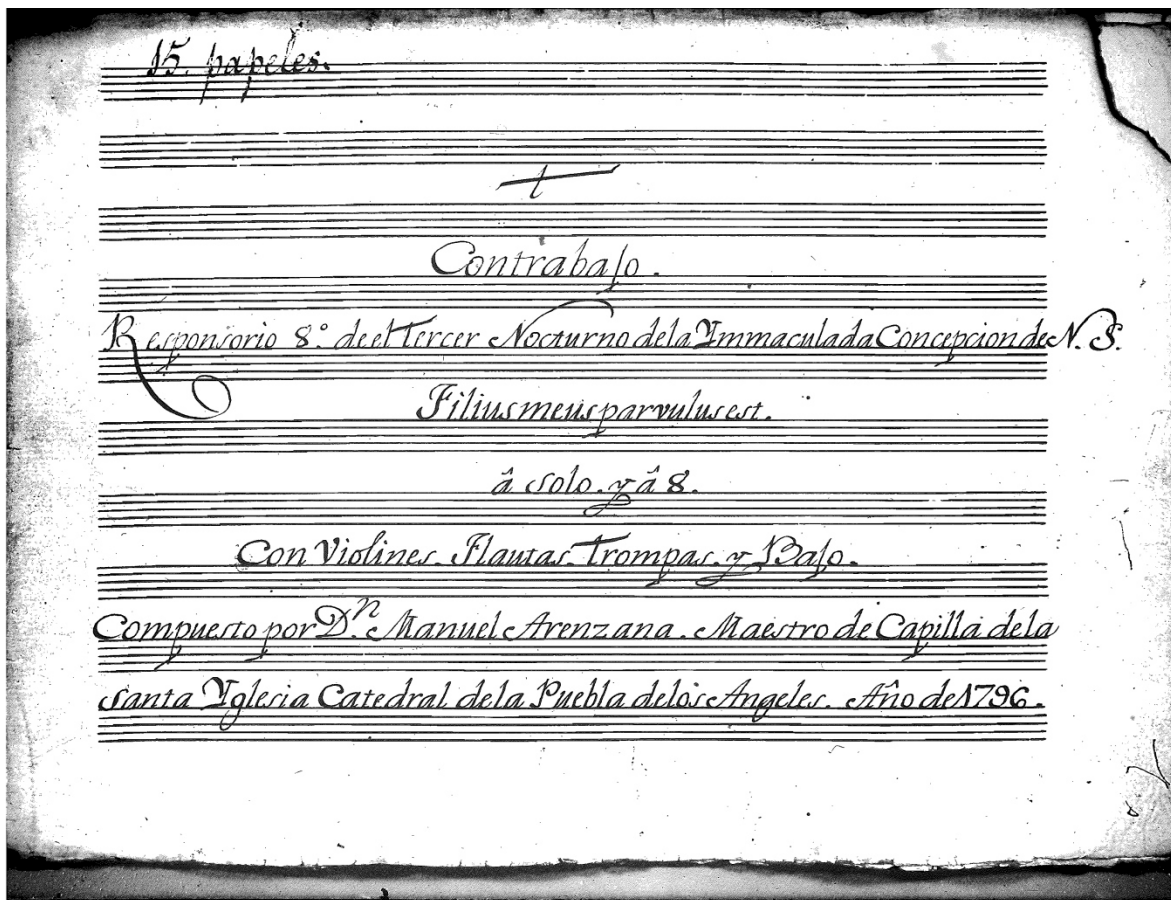 15. papeles.
Contrabajo.
Responsorio 8.º de el Tercer Nocturno de la Ymmaculada Concepcion de N. S.
Filius meus parvulus est.
â solo. y â 8.
Con Violines. Flautas. Trompas. y Bajo.
Compuesto por D.ⁿ Manuel Arenzana. Maestro de Capilla de la
Santa Yglesia Catedral de la Puebla de los Angeles. Año de 1796.